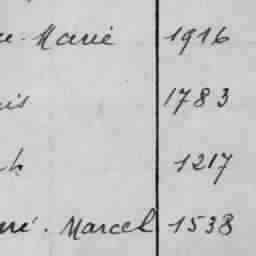 Marie 1916
1783
1217
Marcel 1538